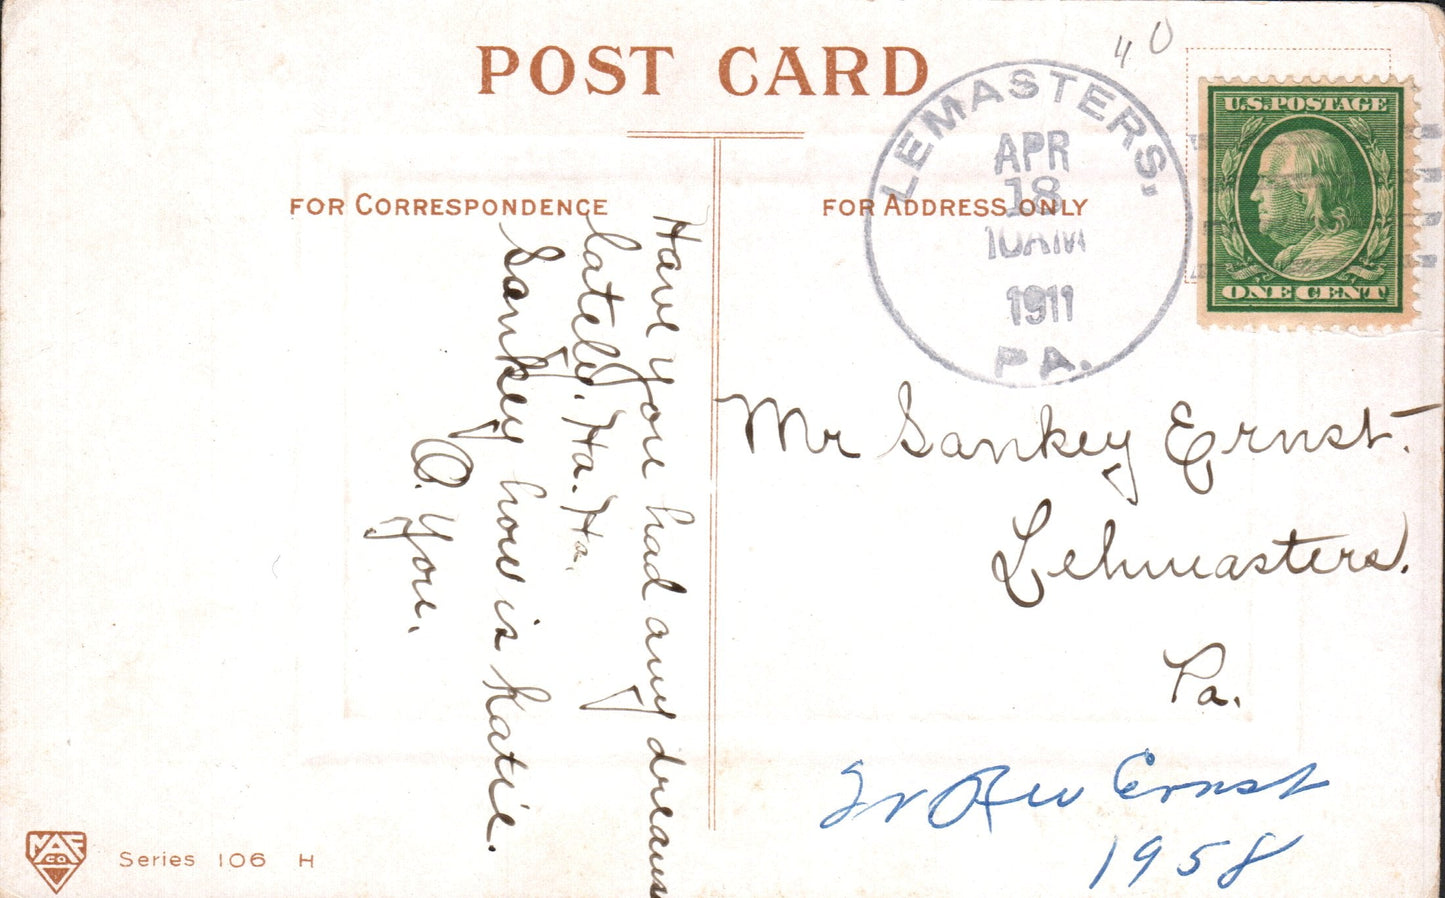 40
POST CARD
LEMASTERS,
APR
18
10AM
1911
PA.
U.S. POSTAGE
ONE CENT
FOR CORRESPONDENCE
FOR ADDRESS ONLY
Have you had any dreams
lately. Ha. Ha.
Sankey how is Katie.
O. You.
Mr Sankey Ernst.
Lehmasters.
Pa.
Ernst
1958
MAF
CO
Series 106 H